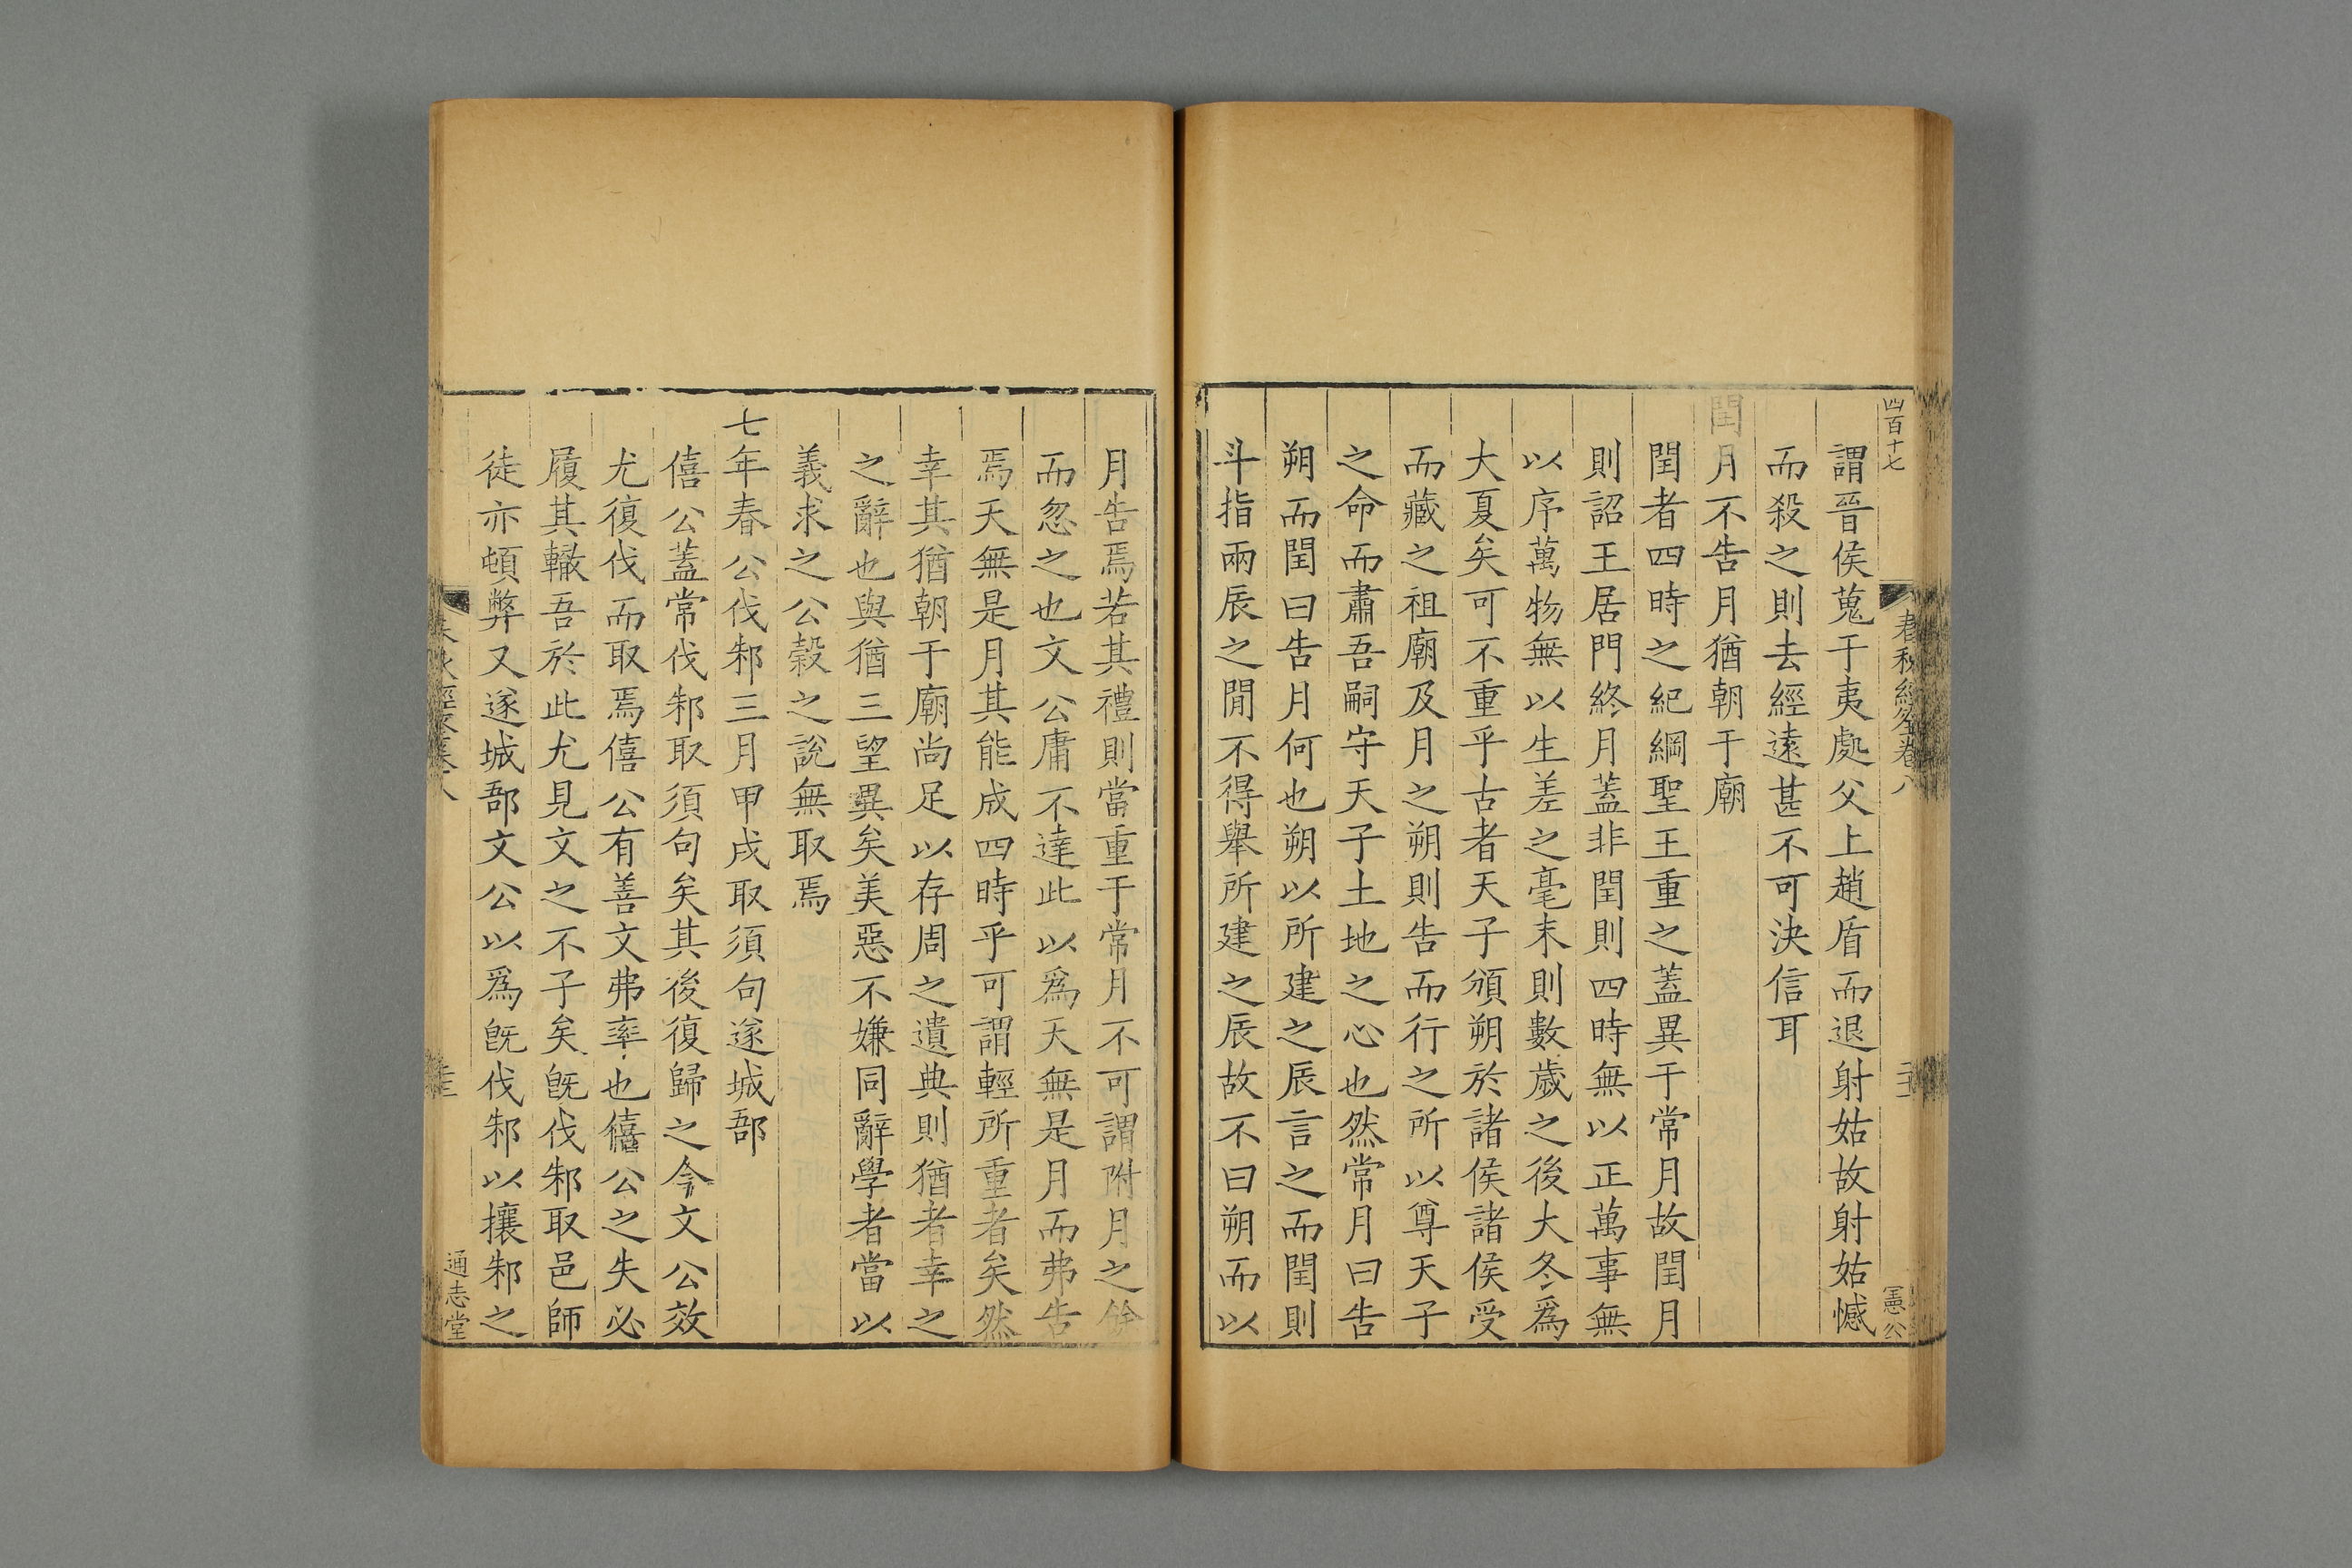 四百十七
謂晉侯蒐于夷處父上趙盾而退射姑故射姑憾
而殺之則去經遠甚不可決信耳
閏月不告月猶朝于廟
閏者四時之紀綱聖王重之蓋異于常月故閏月
則詔王居門終月蓋非閏則四時無以正萬事無
以序萬物無以生差之毫末則數歲之後大冬爲
大夏矣可不重乎古者天子頒朔於諸侯諸侯受
而藏之祖廟及月之朔則告而行之所以尊天子
之命而肅吾嗣守天子土地之心也然常月曰告
朔而閏曰告月何也朔以所建之辰言之而閏則
斗指兩辰之間不得舉所建之辰故不曰朔而以
月告焉若其禮則當重于常月不可謂附月之餘
而忽之也文公庸不達此以爲天無是月而弗告
焉天無是月其能成四時乎可謂輕所重者矣然
幸其猶朝于廟尚足以存周之遺典則猶者幸之
之辭也與猶三望異矣美惡不嫌同辭學者當以
義求之公穀之說無取焉
七年春公伐邾三月甲戌取須句遂城郚
僖公蓋常伐邾取須句矣其後復歸之今文公效
尤復伐而取焉僖公有善文弗率也僖公之失必
履其轍吾於此尤見文之不子矣旣伐邾取邑師
徒亦頓弊又遂城郚文公以爲旣伐邾以攘邾之
通志堂